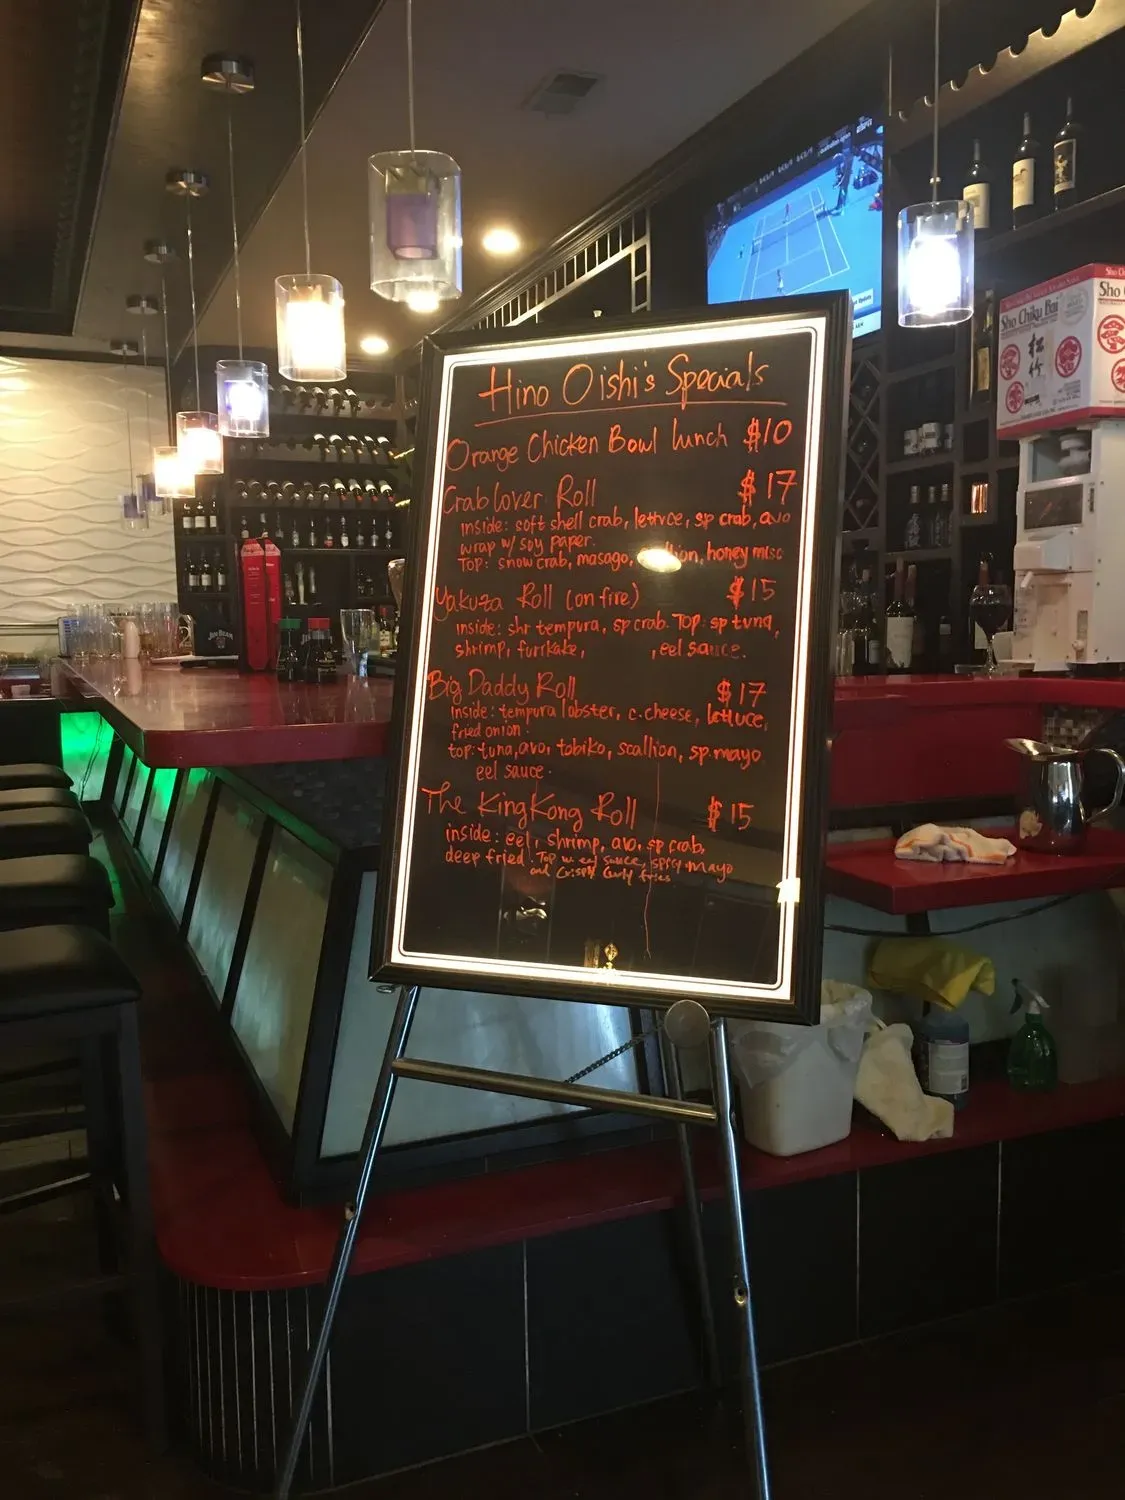 Hino Oishi's Specials
Orange Chicken Bowl lunch $10
Crab lover Roll $17
inside: soft shell crab, lettuce, sp crab, avo
wrap w/ soy paper.
Top: snow crab, masago, honey miso
Yakuza Roll (on fire) $15
inside: shr tempura, sp crab. Top: sp tuna,
shrimp, furikake, , eel sauce.
Big Daddy Roll $17
inside: tempura lobster, c.cheese, lettuce,
fried onion.
top: tuna, avo, tobiko, scallion, sp.mayo
eel sauce.
The KingKong Roll $15
inside: eel, shrimp, avo, sp crab,
deep fried. Top w. eel sauce, spicy mayo
and crispy curly fries
Sho Chiku Bai
Sho
JIM BEAM